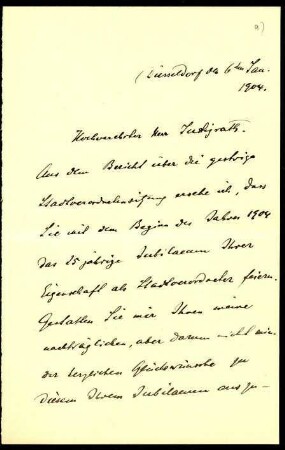 a)
Düsseldorf den 6ten Jan.
1904.
Hochverehrter Herr Justizrath.
Aus dem Bericht über die gestrige
Stadtverordnetensitzung ersehe ich, dass
Sie mit dem Beginn des Jahres 1904
das 25 jährige Jubilaeum Ihrer
Eigenschaft als Stadtverordneter feiern.
Gestatten Sie mir Ihnen meine
nachträglichen, aber darum nicht min-
der herzlichen Glückwünsche zu
diesem Ihrem Jubilaeum auszu-